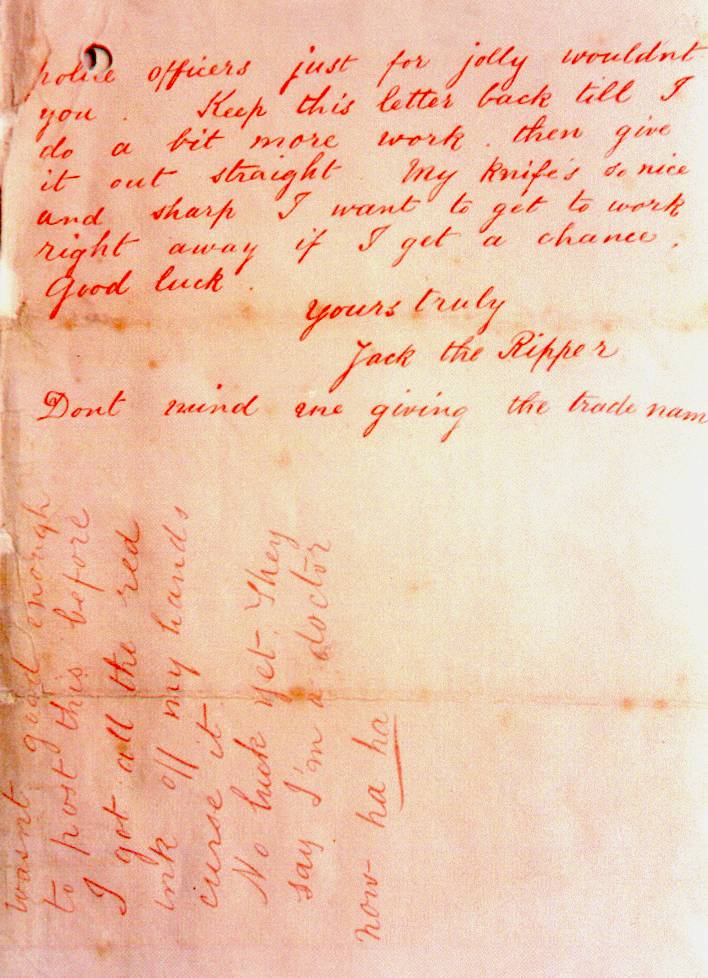 police officers just for jolly wouldnt
you . Keep this letter back till I
do a bit more work . then give
it out straight My knife's so nice
and sharp I want to get to work
right away if I get a chance .
Good luck .
Yours truly
Jack the Ripper
Dont mind me giving the trade nam
wasnt good enough
to post this before
I got all the red
ink off my hands
curse it
No luck yet. They
say I'm a doctor
now ha ha